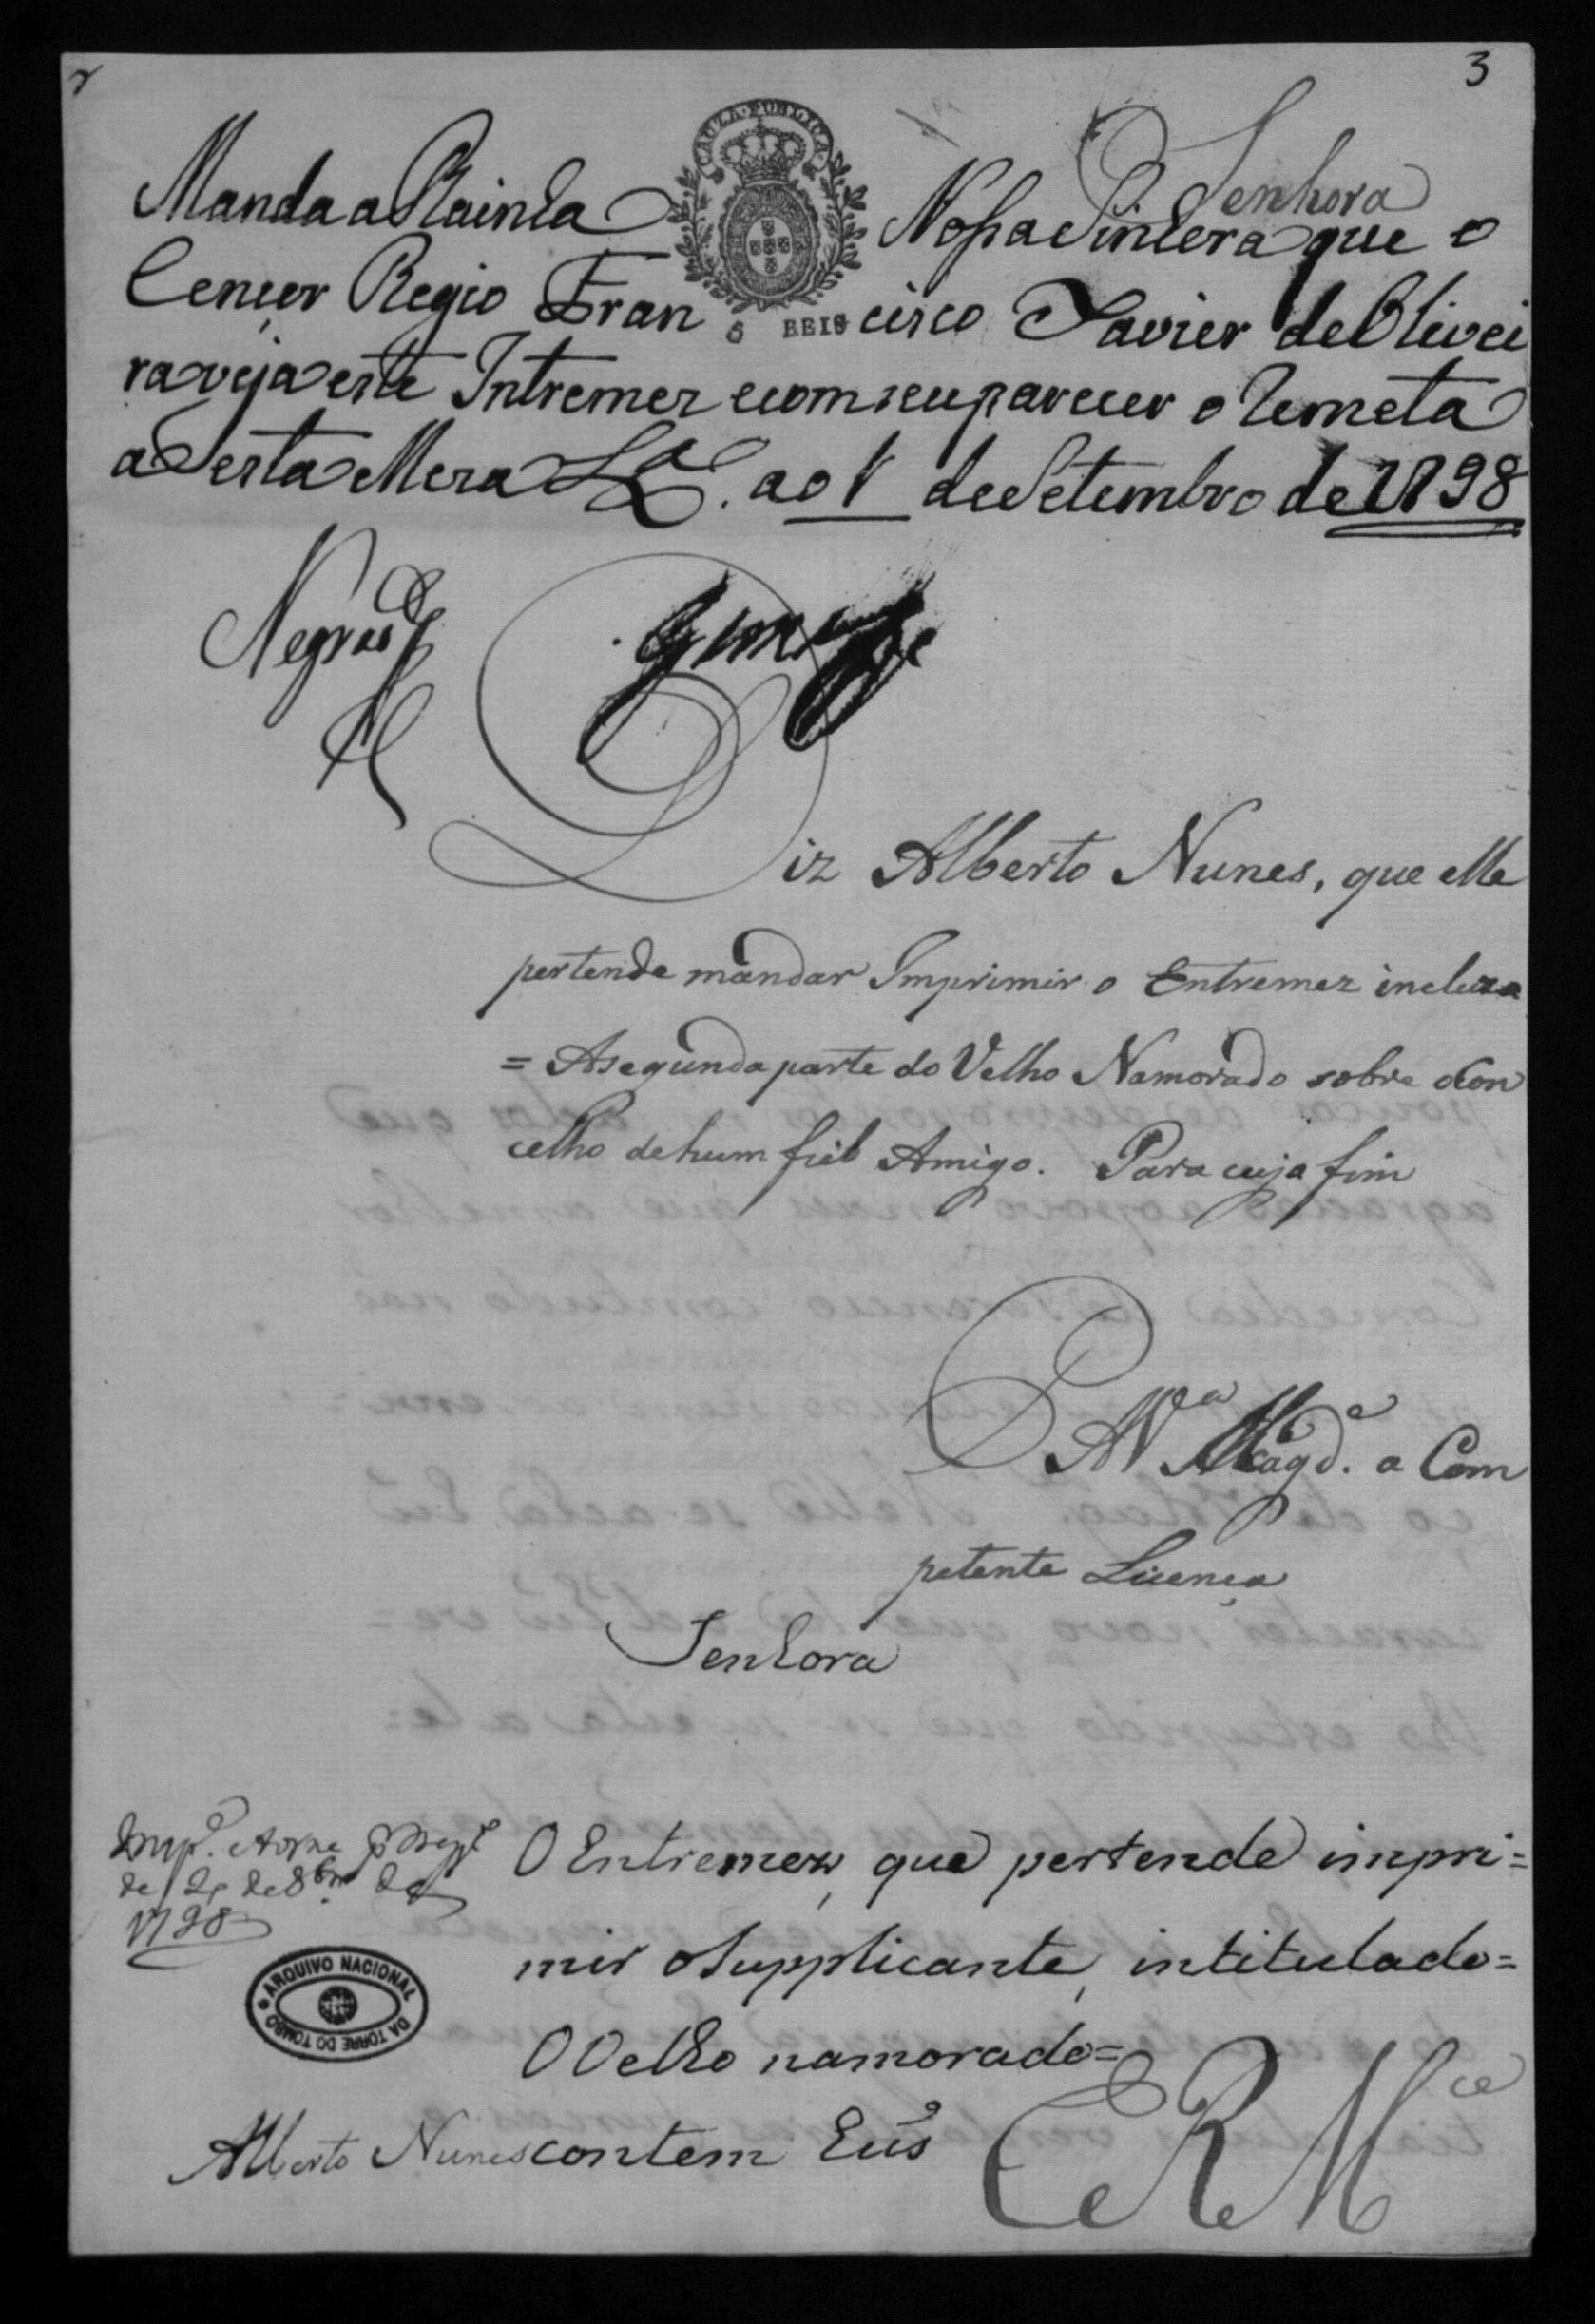 3
CAUZA PUBLICA
Senhora
Manda a Rainha Nossa Sinhora que o
Cençor Regio Fran cisco Xavier de Olivei
ra veja este Intremez e com seu parecer o Remeta
a Desta Meza Lx.ª ao 1 de Setembro de 1798
REIS
Negrão
Diz Alberto Nunes, que elle
pertende mandar Imprimir o Entremez incluzo
= A segunda parte do Velho Namorado sobre o Con
celho de hum fiél Amigo. Para cujo fim
P. A V.ª Mag.de a Com
petente Licença
Senhora
de 8br.º de
1798
O Entremez, que pertende impri=
mir o Supplicante, intitulado=
O Velho namorado=
Alberto Nunes contem hũs
E R M.ce
ARQUIVO NACIONAL DA TORRE DO TOMBO